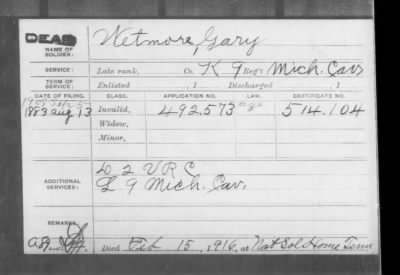 DEAD
Wetmore, Gary
NAME OF SOLDIER:
SERVICE: Late rank, Co. K 9 Reg't Mich. Cav
TERM OF SERVICE: Enlisted , 1 Discharged , 1
DATE OF FILING. CLASS. APPLICATION NO. LAW. CERTIFICATE NO.
1883 Aug 13 Invalid, 492.573 age 514.104
Widow,
Minor,
D 2 V R C
ADDITIONAL SERVICES: L 9 Mich. Cav.
REMARKS:
Died Feb 15, 1916, at Nat Sol Home Tenn